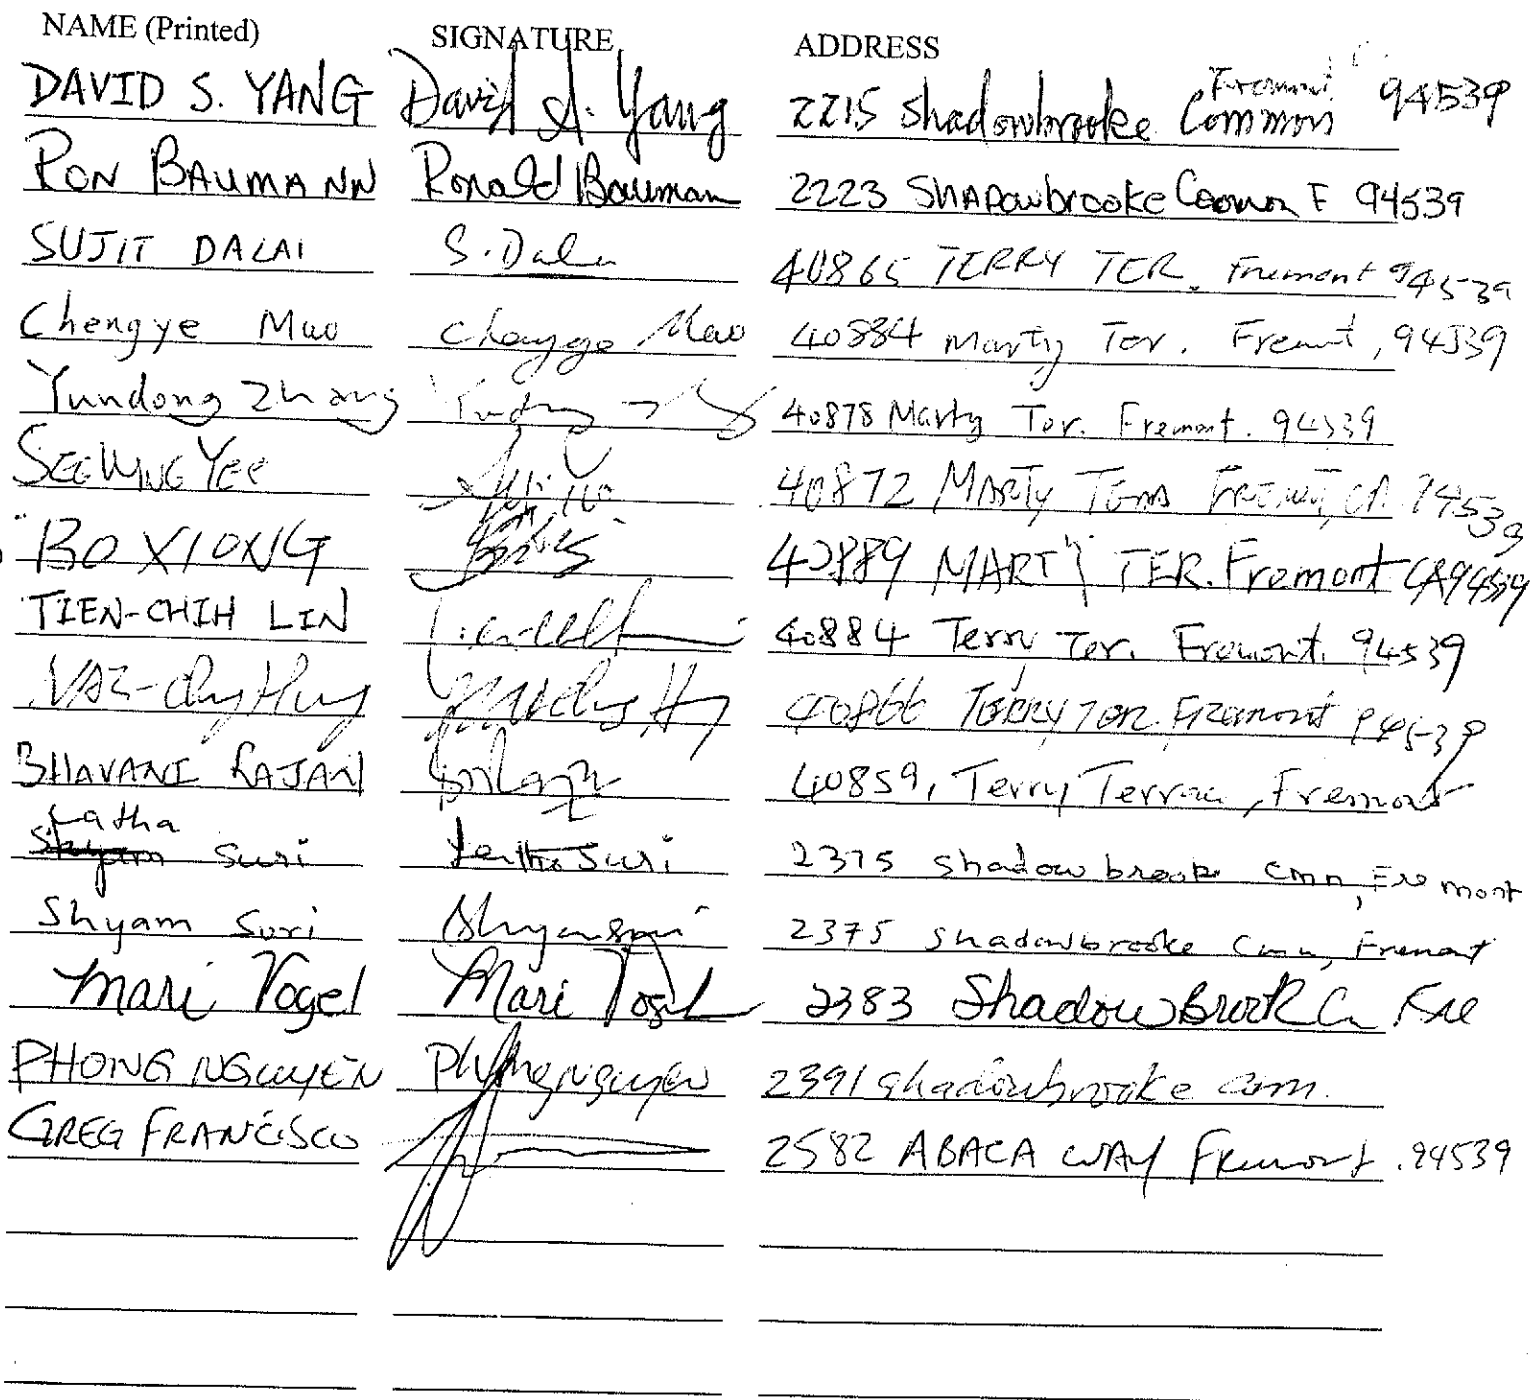 NAME (Printed) SIGNATURE ADDRESS
DAVID S. YANG David S. Yang 2215 Shadowbrooke Common Fremont 94539
RON BAUMANN Ronald Bauman 2223 SHADowbrooke Common F 94539
SUJIT DALAI S. Dala 40865 TERRY TER. Fremont 94539
Chengye Mao Chengye Mao 40884 Marty Ter. Fremont, 94539
Yundong Zhang 40878 Marty Ter. Fremont. 94539
SEEWING Yee 40872 MARTY Fremont, CA. 94539
BO XIONG 40889 MARTY TER. Fremont CA 94539
TIEN-CHIH LIN 40884 Terry Ter. Fremont. 94539
40866 TERRY TER. Fremont 94539
BHAVANI RAJAN 40859, Terry Terrace, Fremont
Latha Shyam Suri Latha Suri 2375 shadowbrooke cmn, Fremont
Shyam Suri Shyam Suri 2375 shadowbrooke Cmn, Fremont
Mari Vogel Mari Vogel 2383 ShadowBrook Cm Fre
PHONG NGUYEN Phong nguyen 2391 shadowbrooke com.
GREG FRANCISCO 2582 ABACA WAY Fremont. 94539